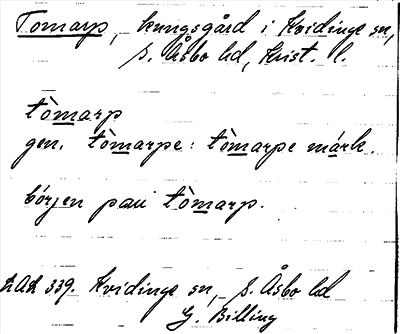 Tomarp, kungsgård i Kvidinge sn,
S. Åsbo hd, Krist. l.
tòmarp
gen. tòmarpe: tòmarpe márk.
bórjen pau tòmarp.
LAL 339. Kvidinge sn, S. Åsbo hd
G. Billing